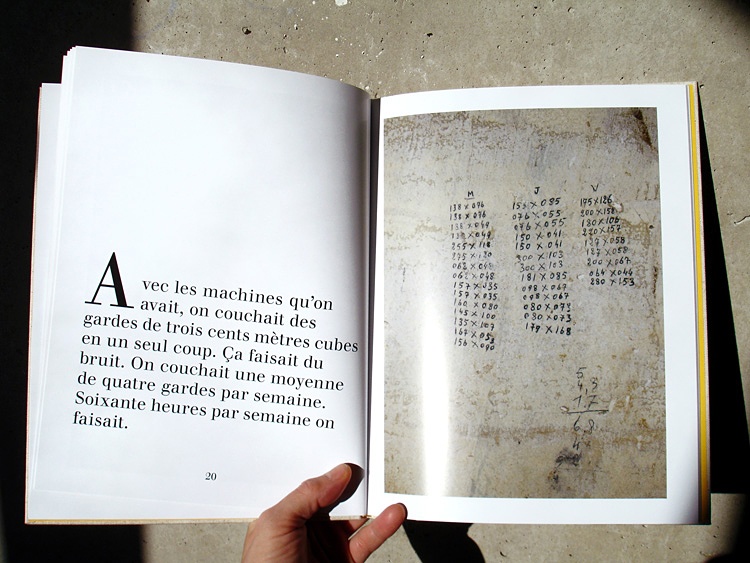 Avec les machines qu'on
avait, on couchait des
gardes de trois cents mètres cubes
en un seul coup. Ça faisait du
bruit. On couchait une moyenne
de quatre gardes par semaine.
Soixante heures par semaine on
faisait.
20
M
138 x 076
138 x 076
138 x 049
138 x 049
255 x 118
275 x 120
062 x 048
062 x 048
157 x 035
157 x 035
160 x 080
145 x 100
135 x 107
167 x 053
156 x 090
J
156 x 085
076 x 055
076 x 055
150 x 041
150 x 041
200 x 103
300 x 103
181 x 085
098 x 067
098 x 067
080 x 073
080 x 073
179 x 168
V
175 x 126
200 x 158
180 x 106
220 x 157
127 x 058
127 x 058
200 x 067
064 x 044
280 x 153
5
4,3
1 7
6,8
4